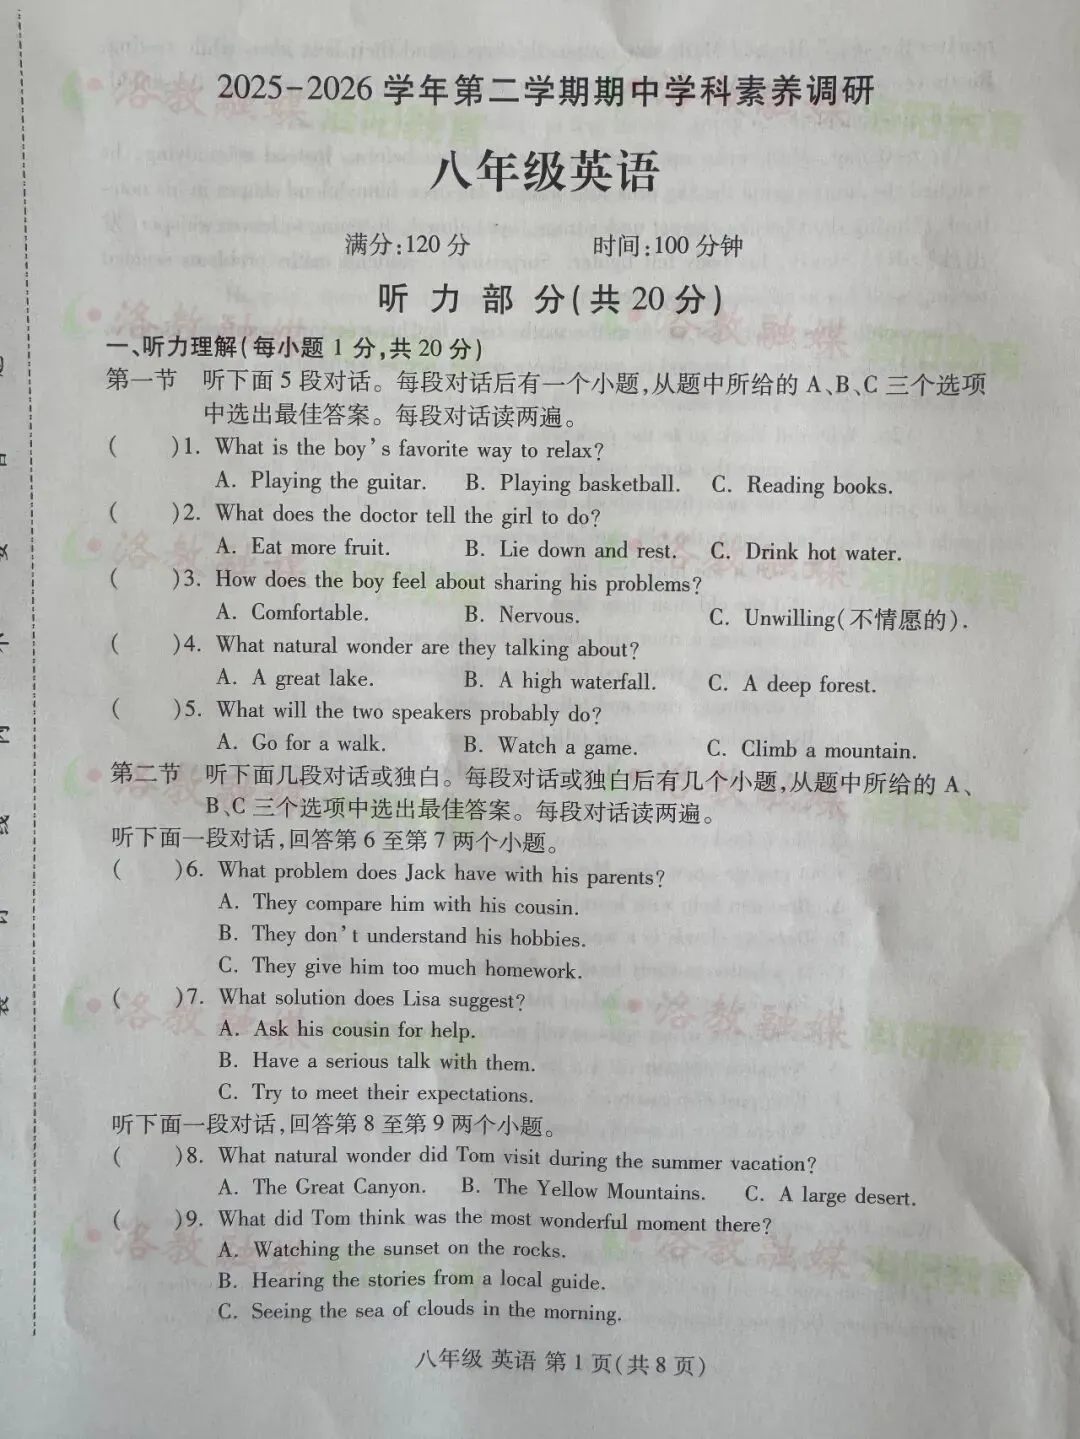 2025-2026 学年第二学期期中学科素养调研
八年级英语
满分:120 分 时间:100 分钟
听 力 部 分(共 20 分)
一、听力理解(每小题 1 分,共 20 分)
第一节 听下面 5 段对话。每段对话后有一个小题,从题中所给的 A、B、C 三个选项
中选出最佳答案。每段对话读两遍。
( )1. What is the boy's favorite way to relax?
A. Playing the guitar. B. Playing basketball. C. Reading books.
( )2. What does the doctor tell the girl to do?
A. Eat more fruit. B. Lie down and rest. C. Drink hot water.
( )3. How does the boy feel about sharing his problems?
A. Comfortable. B. Nervous. C. Unwilling(不情愿的).
( )4. What natural wonder are they talking about?
A. A great lake. B. A high waterfall. C. A deep forest.
( )5. What will the two speakers probably do?
A. Go for a walk. B. Watch a game. C. Climb a mountain.
第二节 听下面几段对话或独白。每段对话或独白后有几个小题,从题中所给的 A、
B、C 三个选项中选出最佳答案。每段对话读两遍。
听下面一段对话,回答第 6 至第 7 两个小题。
( )6. What problem does Jack have with his parents?
A. They compare him with his cousin.
B. They don't understand his hobbies.
C. They give him too much homework.
( )7. What solution does Lisa suggest?
A. Ask his cousin for help.
B. Have a serious talk with them.
C. Try to meet their expectations.
听下面一段对话,回答第 8 至第 9 两个小题。
( )8. What natural wonder did Tom visit during the summer vacation?
A. The Great Canyon. B. The Yellow Mountains. C. A large desert.
( )9. What did Tom think was the most wonderful moment there?
A. Watching the sunset on the rocks.
B. Hearing the stories from a local guide.
C. Seeing the sea of clouds in the morning.
八年级 英语 第 1 页(共 8 页)
洛教融媒